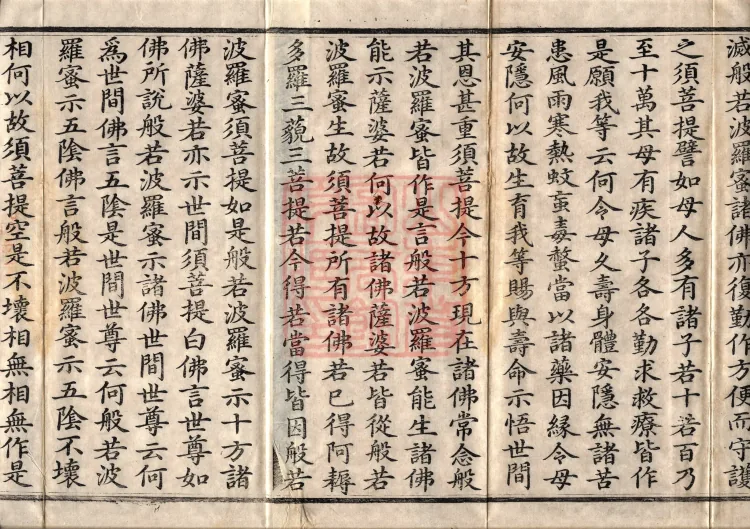 滅般若波羅蜜諸佛亦復勤作方便而守護
之須菩提譬如母人多有諸子若十若百乃
至十萬其母有疾諸子各各勤求救療皆作
是願我等云何令母久壽身體安隱無諸苦
患風雨寒熱蚊䖟毒螫當以諸藥因緣令母
安隱何以故生育我等賜與壽命示悟世間
其恩甚重須菩提今十方現在諸佛常念般
若波羅蜜皆作是言般若波羅蜜能生諸佛
能示薩婆若何以故諸佛薩婆若皆從般若
波羅蜜生故須菩提所有諸佛若已得阿耨
多羅三藐三菩提若今得若當得皆因般若
波羅蜜須菩提如是般若波羅蜜示十方諸
佛薩婆若亦示世間須菩提白佛言世尊如
佛所說般若波羅蜜示諸佛世間世尊云何
為世間佛言五陰是世間世尊云何般若波
羅蜜示五陰佛言般若波羅蜜示五陰不壞
相何以故須菩提空是不壞相無相無作是